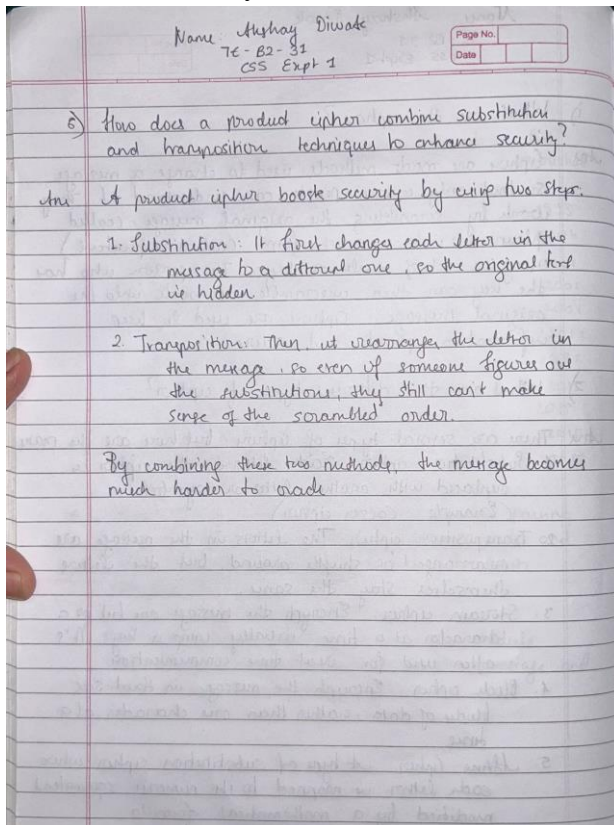 Name: Akshay Diwate
7E - B2 - 31
CSS Expt 1
Page No.
Date
6) How does a product cipher combine substitution
and transposition techniques to enhance security?
Ans A product cipher boosts security by using two steps.
1. Substitution: It first changes each letter in the
message to a different one, so the original text
is hidden
2. Transposition: Then, it rearranges the letter in
the message, so even if someone figures out
the substitutions, they still can't make
sense of the scrambled order.
By combining these two methods, the message becomes
much harder to crack